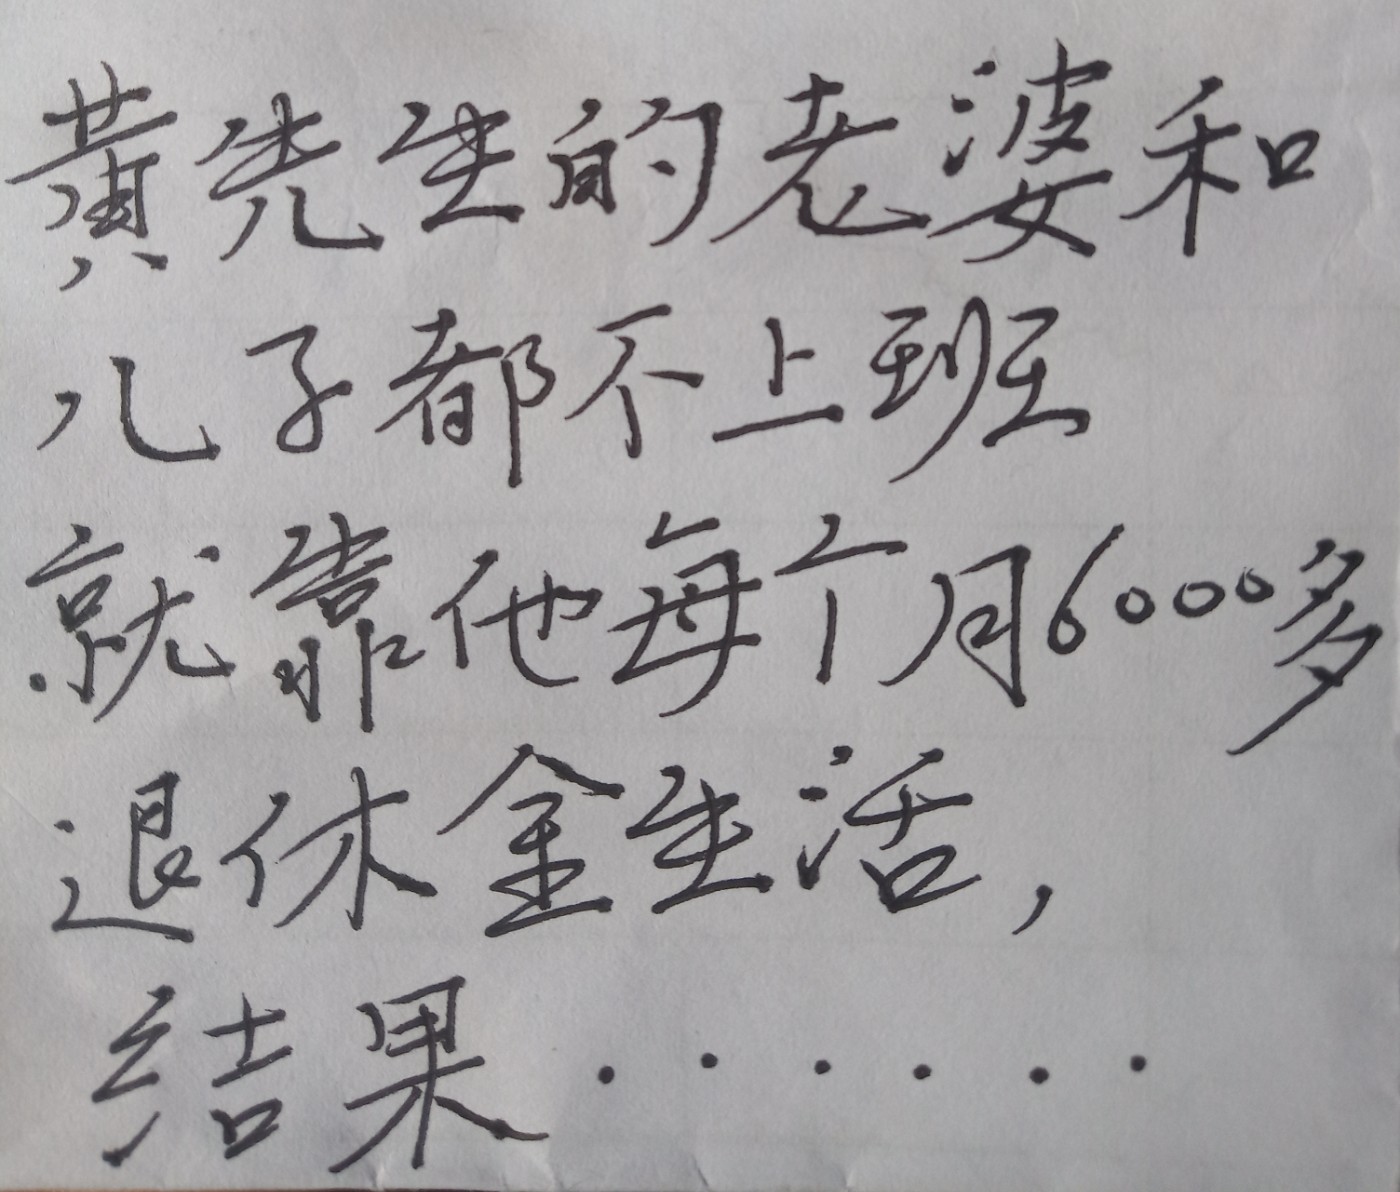 黄先生的老婆和
儿子都不上班
就靠他每个月6000多
退休金生活，
结果······